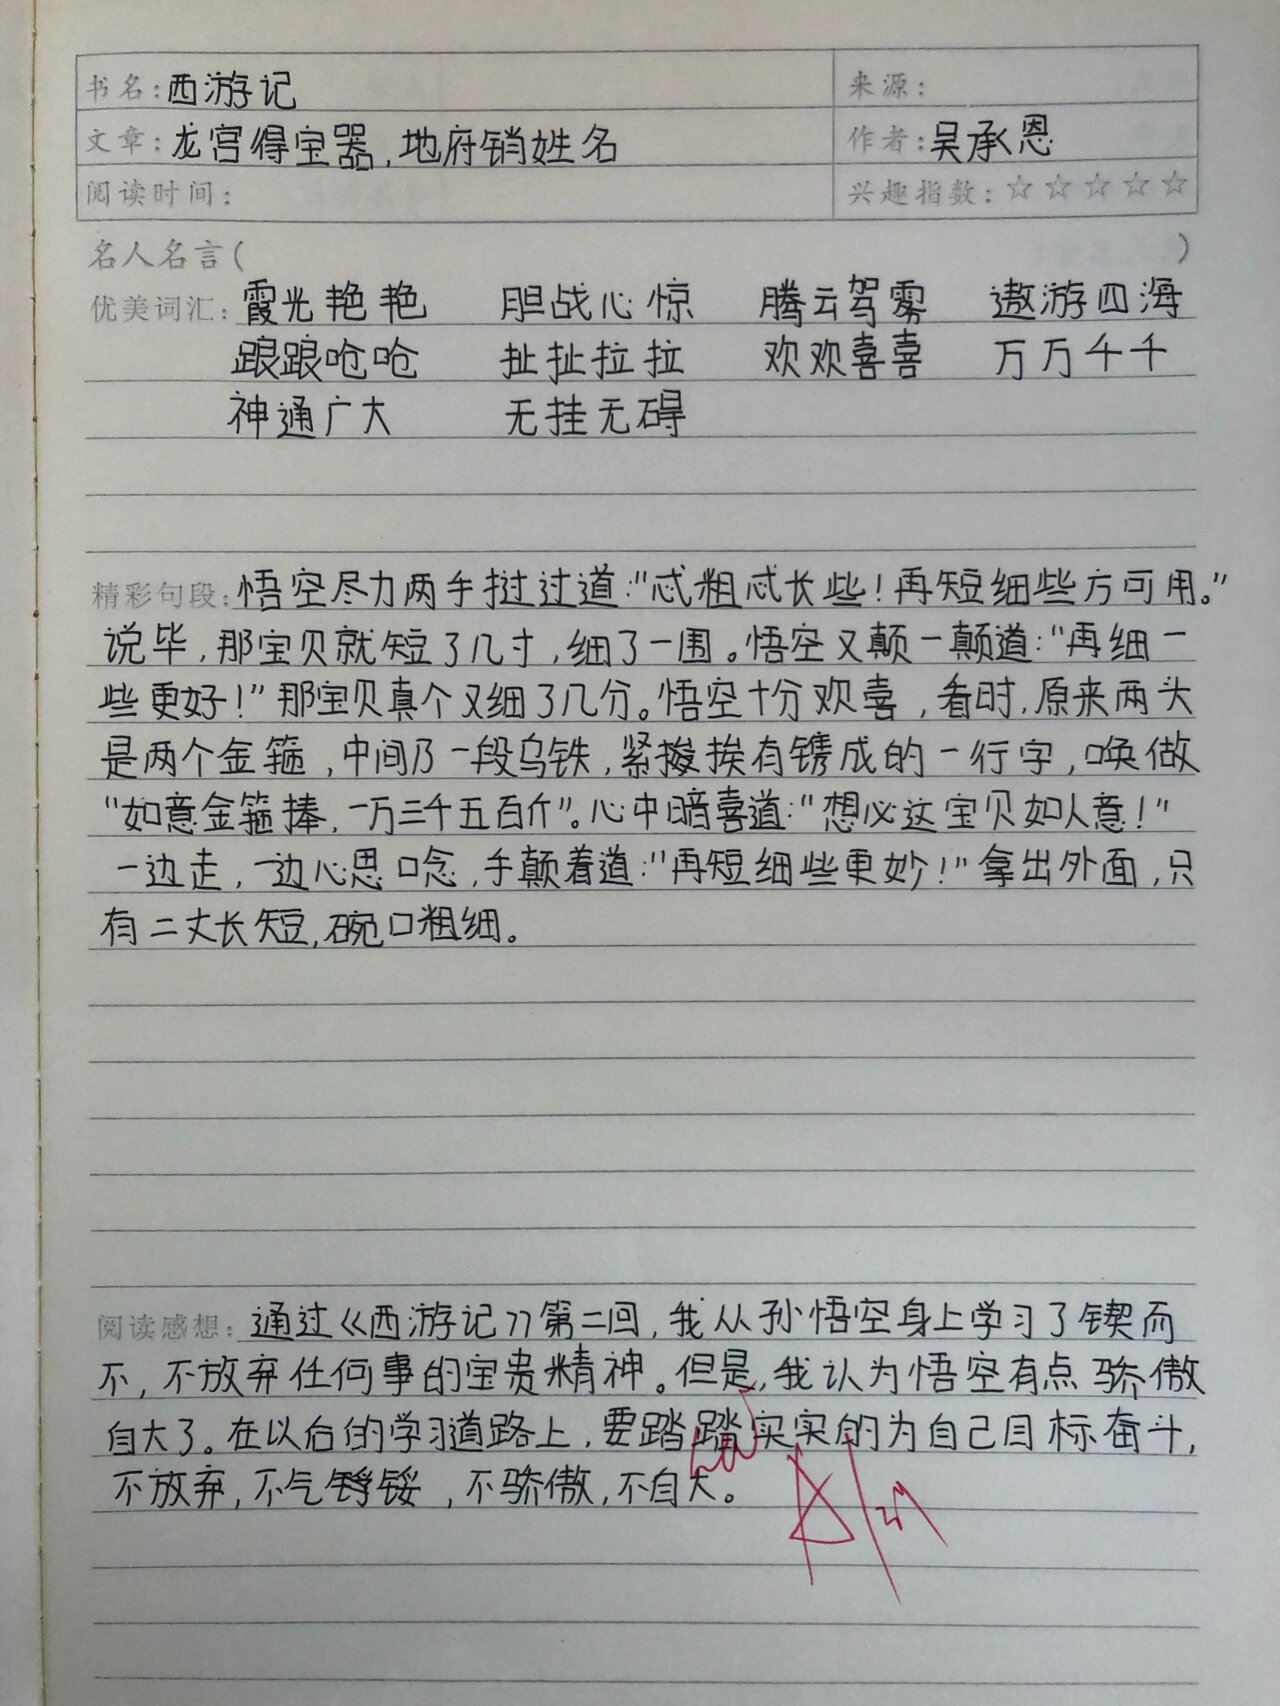 书名:西游记 来源:
文章:龙宫得宝器,地府销姓名 作者:吴承恩
阅读时间: 兴趣指数:☆☆☆☆☆
名人名言( )
优美词汇:霞光艳艳 胆战心惊 腾云驾雾 遨游四海
踉踉呛呛 扯扯拉拉 欢欢喜喜 万万千千
神通广大 无挂无碍
精彩句段:悟空尽力两手挝过道:“忒粗忒长些!再短细些方可用。”
说毕,那宝贝就短了几寸,细了一围。悟空又颠一颠道:“再细一
些更好!”那宝贝真个又细了几分。悟空十分欢喜,看时,原来两头
是两个金箍,中间乃一段乌铁,紧挨有镌成的一行字,唤做
“如意金箍捧,一万三千五百斤”。心中暗喜道:“想必这宝贝如人意!”
一边走,一边心思口念,手颠着道:“再短细些更妙!”拿出外面,只
有二丈长短,碗口粗细。
阅读感想:通过《西游记》第二回,我从孙悟空身上学习了锲而
不,不放弃任何事的宝贵精神。但是,我认为悟空有点骄傲
自大了。在以后的学习道路上,要踏踏实实的为自己目标奋斗,
不放弃,不气,不骄傲,不自大。